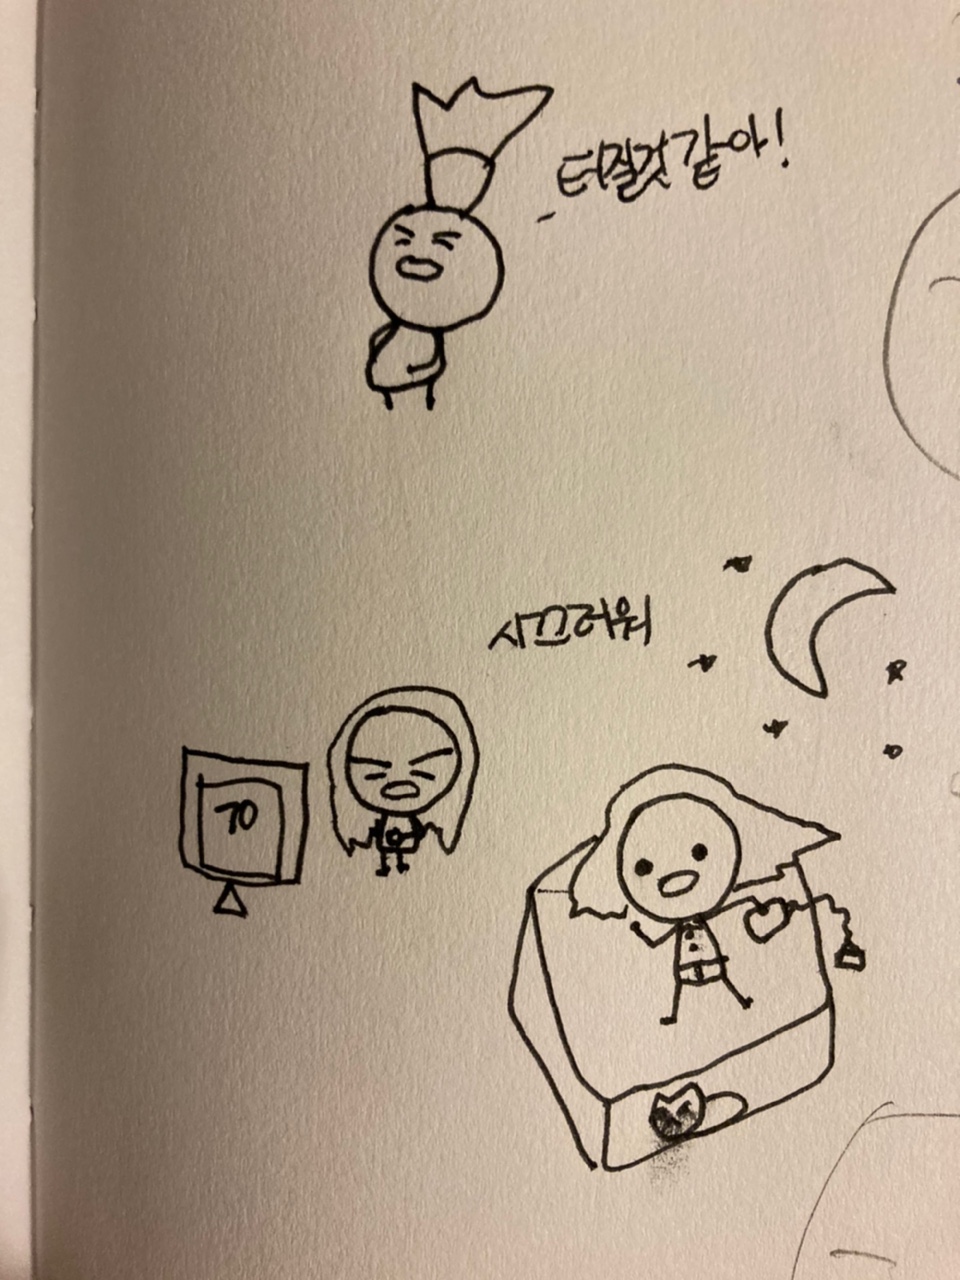 터질것 같아!
시끄러워
70